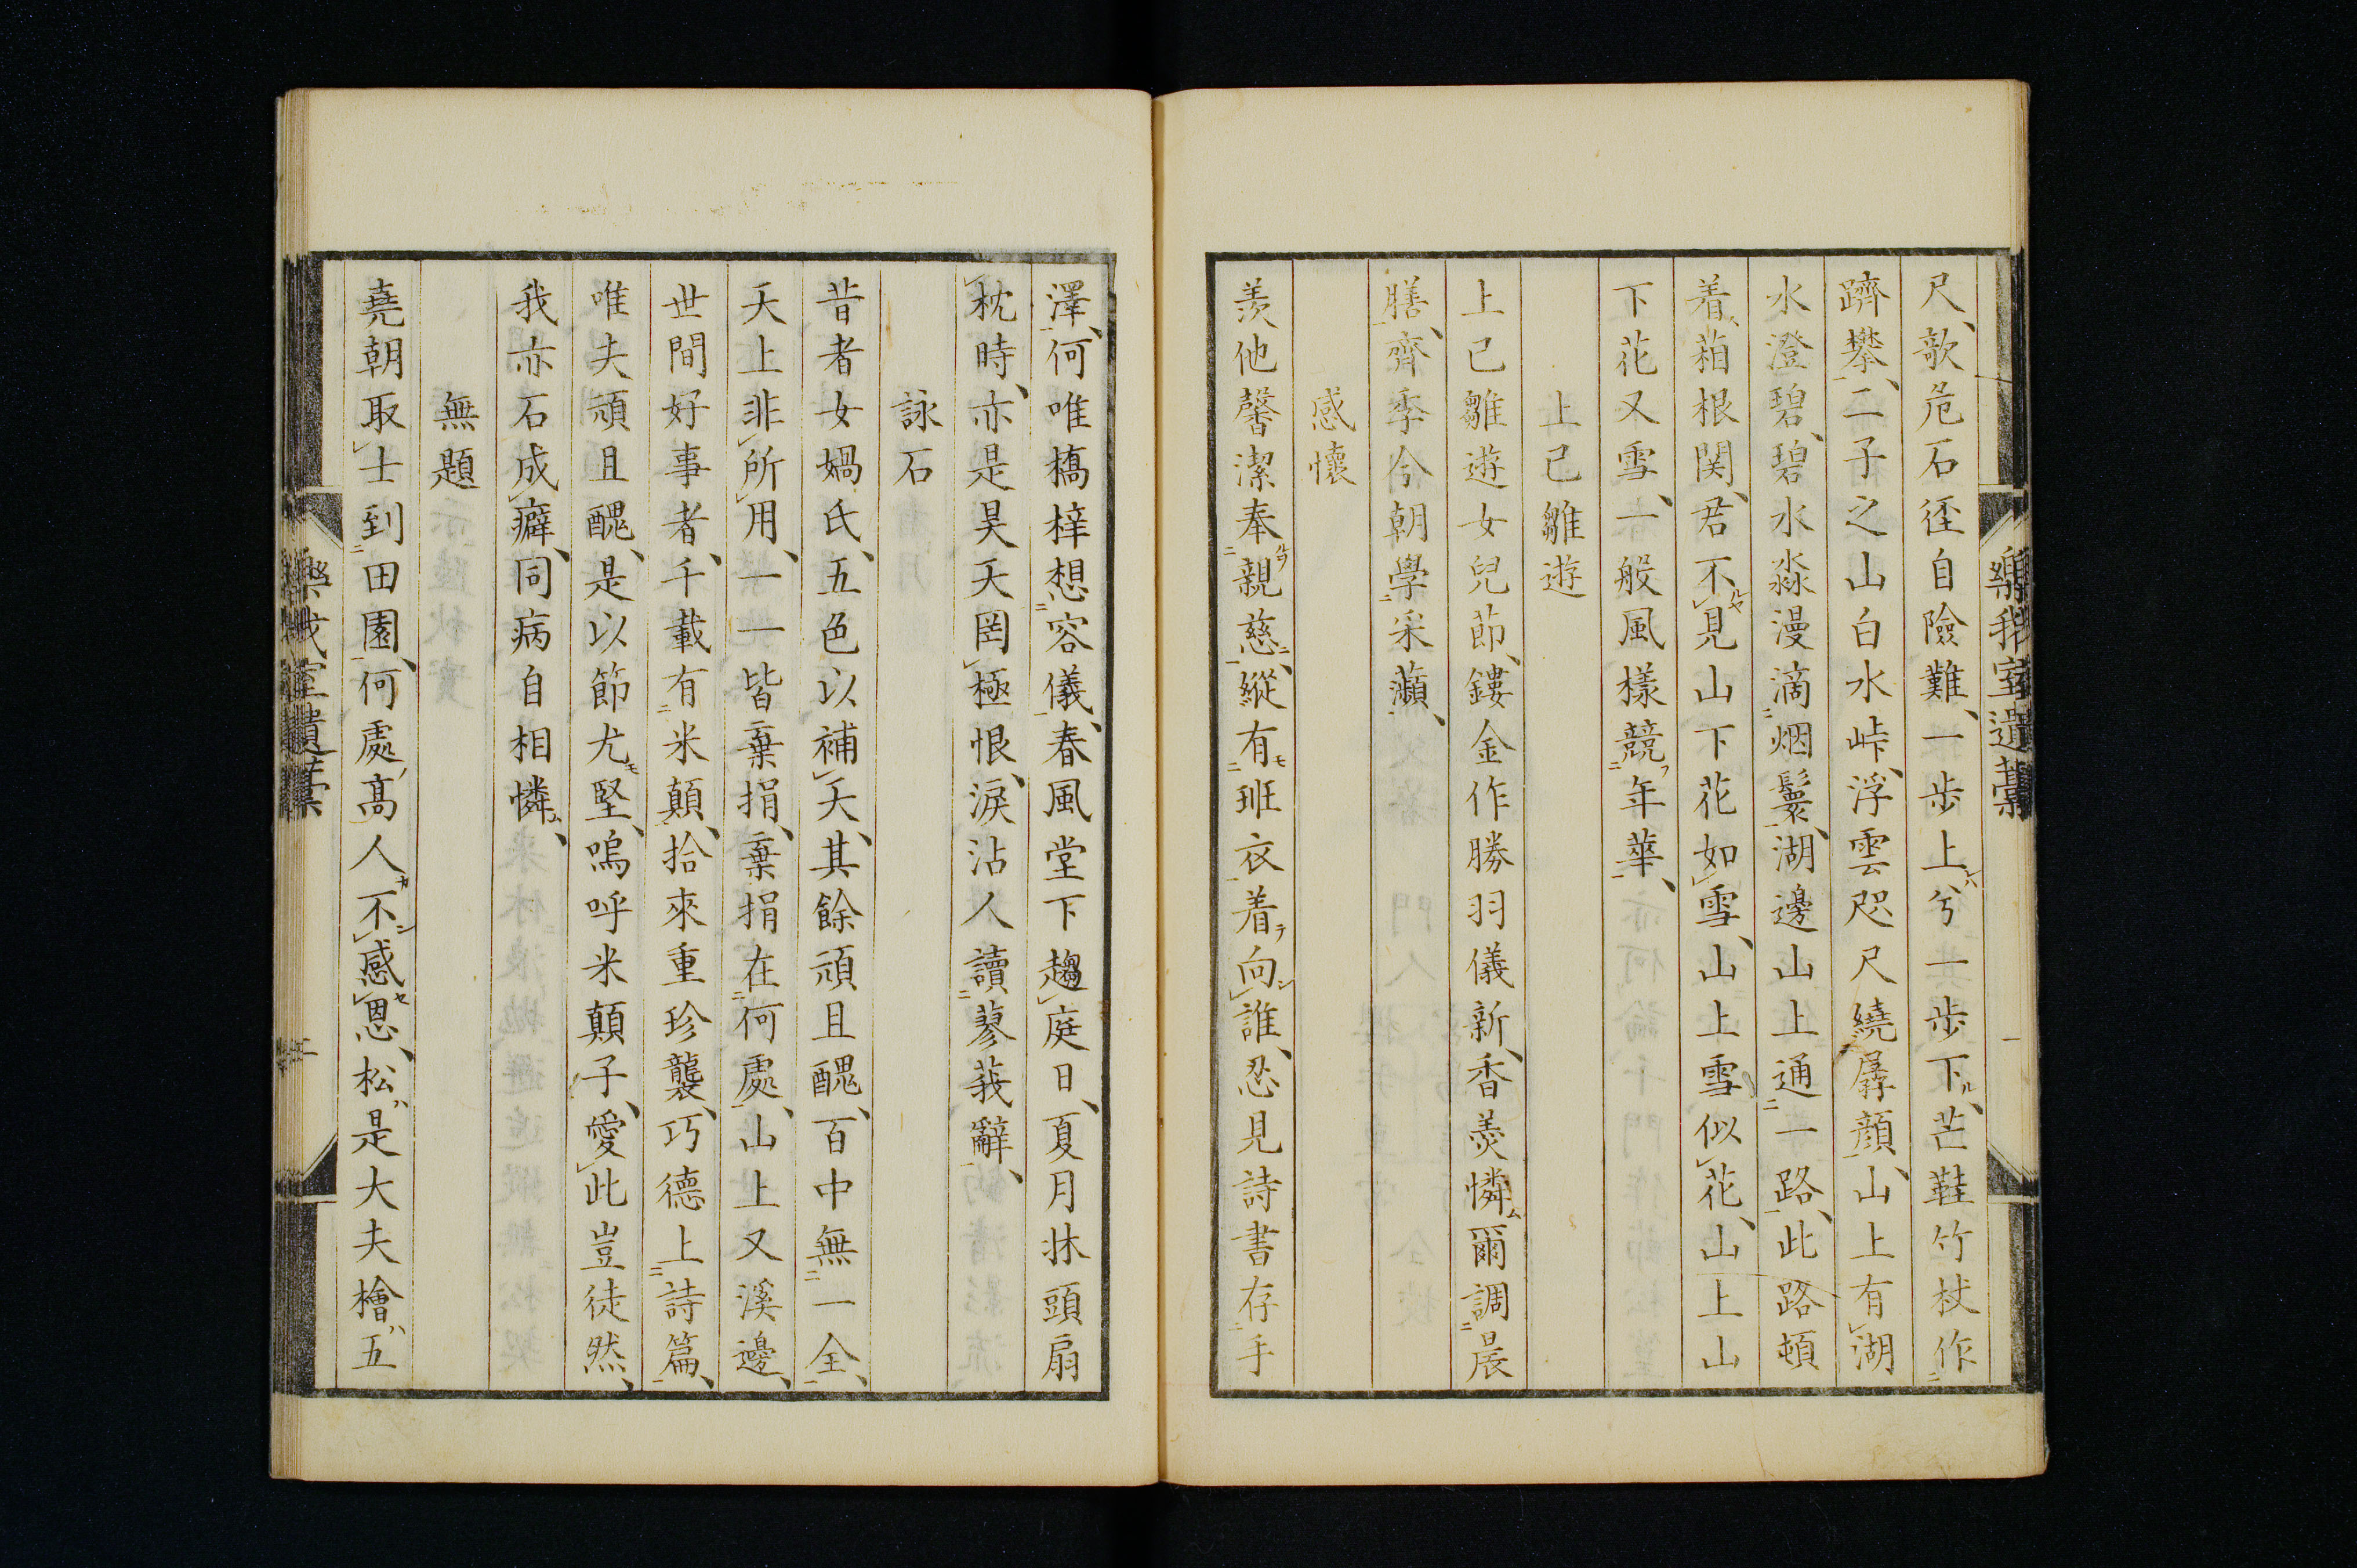 樂我室遺藁
一
尺、歌危石徑自險難、一歩上兮一歩下、芒鞋竹杖作
躋攀、二子之山白水峠、浮雲咫尺繞孱顔、山上有湖
水澄碧、碧水淼漫滴烟鬟、湖邊山上通一路、此路頓
着葙根関、君不見山下花如雪、山上雪似花、山上山
下花又雪、一般風様競年華、
上巳雛遊
上巳雛遊女兒節、鏤金作勝羽儀新、香羮憐爾調晨
膳、齊季今朝學采蘋、
感懷
羨他馨潔奉親慈、縱有班衣着向誰、忍見詩書存手
澤、何唯橋梓想容儀、春風堂下趨庭日、夏月牀頭扇
枕時、亦是昊天罔極恨、涙沾人讀蓼莪辭、
詠石
昔者女媧氏、五色以補天、其餘頑且醜、百中無一全、
天上非所用、一一皆棄捐、棄捐在何處、山上又溪邊、
世間好事者、千載有米顛、拾來重珍襲、巧德上詩篇、
唯夫頑且醜、是以節尤堅、嗚呼米顛子、愛此豈徒然、
我亦石成癖、同病自相憐、
無題
堯朝取士到田園、何處高人不感恩、松是大夫檜五
樂我室遺藁